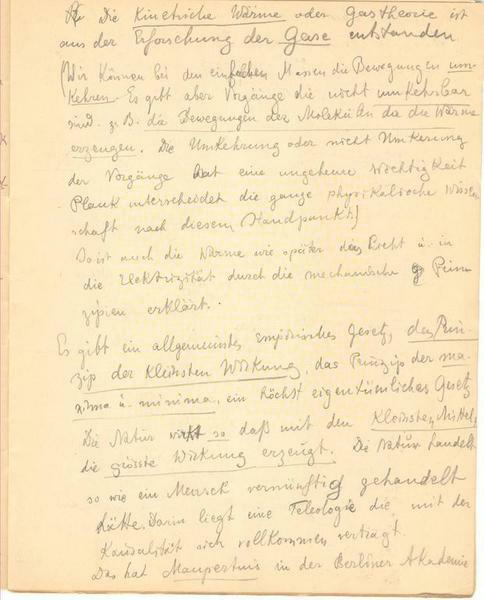 Die Kinetische Wärme oder Gastheorie ist
aus der Erforschung der Gase entstanden
(Wir können bei den einfachen Massen die Bewegungen um-
kehren. Es gibt aber Vorgänge die nicht umkehrbar
sind. z.B. die Bewegungen der Moleküln da die Wärme
erzeugen. Die Umkehrung oder nicht Umkerung
der Vorgänge hat eine ungeheure Wichtigkeit
Plank unterscheidet die ganze physikalische Wissen
schaft nach diesem Standpunkt.)
So ist auch die Wärme wie später das Licht u. in
die Elektrizität durch die mechanische Prin
zipien erklärt.
Es gibt ein allgemeinstes empirisches Gesetz, das Prin-
zip der Kleinsten Wirkung, das Prinzip der ma-
xima u. minima, ein höchst eigentümliches Gesetz
Die Natur wirkt so daß mit den Kleinsten Mittel,
die grösste Wirkung erzeugt. Die Natur handelt
so wie ein Mensch vernünftig gehandelt
hätte. Darin liegt eine Teleologie die mit der
Kausalität sich vollkommen verträgt.
Das hat Maupertuis in der Berliner Akademie